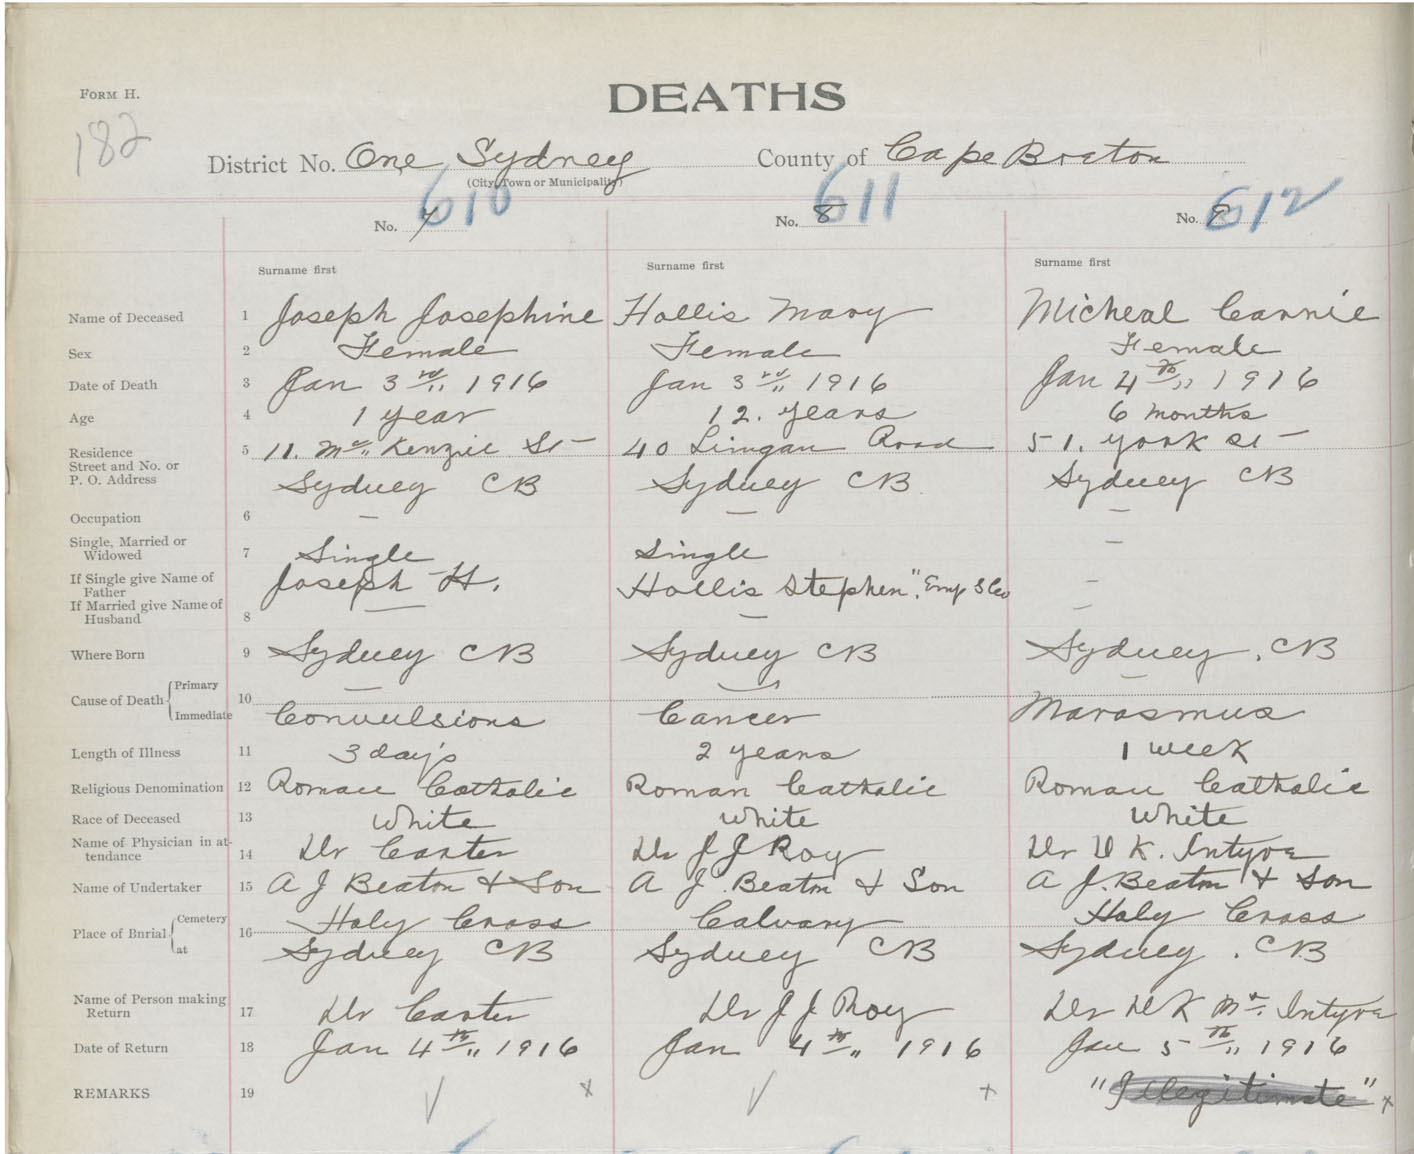 FORM H.
DEATHS
182
District No. One Sydney County of Cape Breton
(City, Town or Municipality)
610 611 612
No. 7 No. 8 No. 9
Surname first Surname first Surname first
Name of Deceased 1 Joseph Josephine Hollis Mary Micheal Carrie
Sex 2 Female Female Female
Date of Death 3 Jan 3rd 1916 Jan 3rd 1916 Jan 4th 1916
Age 4 1 year 12. years 6 months
Residence 5 11. Mc Kenzie St 40 Lingan Road 51. york St
Street and No. or
P. O. Address Sydney CB Sydney CB Sydney CB
Occupation 6 — — —
Single, Married or
Widowed 7 Single Single —
If Single give Name of
Father Joseph H. Hollis Stephen". Emp S Co —
If Married give Name of
Husband 8 — — —
Where Born 9 Sydney CB Sydney CB Sydney. CB
Cause of Death { Primary 10 — — —
Immediate Convulsions Cancer Marasmus
Length of Illness 11 3 days 2 years 1 week
Religious Denomination 12 Roman Catholic Roman Catholic Roman Catholic
Race of Deceased 13 White White White
Name of Physician in at-
tendance 14 Dr Carter Dr J J Roy Dr D K. Intyre
Name of Undertaker 15 A J Beaton & Son A J. Beaton & Son A J. Beaton & Son
Place of Burial { Cemetery 16 Holy Cross Calvary Holy Cross
at Sydney CB Sydney CB Sydney. CB
Name of Person making
Return 17 Dr Carter Dr J J Roy Dr D K Mc Intyre
Date of Return 18 Jan 4th 1916 Jan 4th 1916 Jan 5th 1916
REMARKS 19 √ x √ x "Illegitimate" x